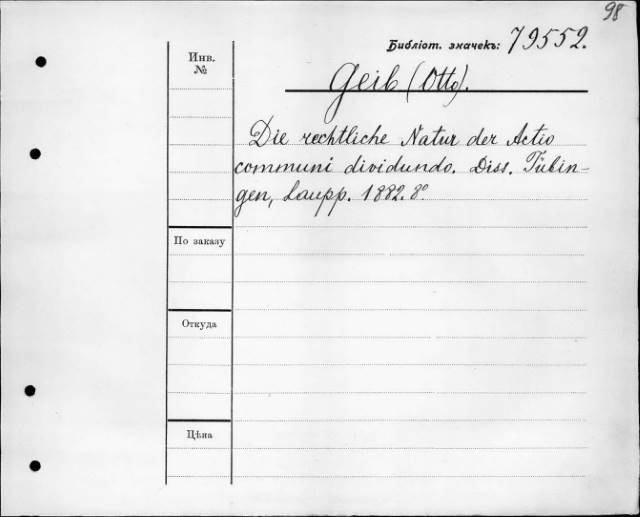 98
Библіот. значекъ: 79552.
Инв.
№
Geib (Otto).
Die rechtliche Natur der Actio
communi dividundo. Diss. Tübin-
gen, Laupp. 1882. 8°.
По заказу
Откуда
Цѣна